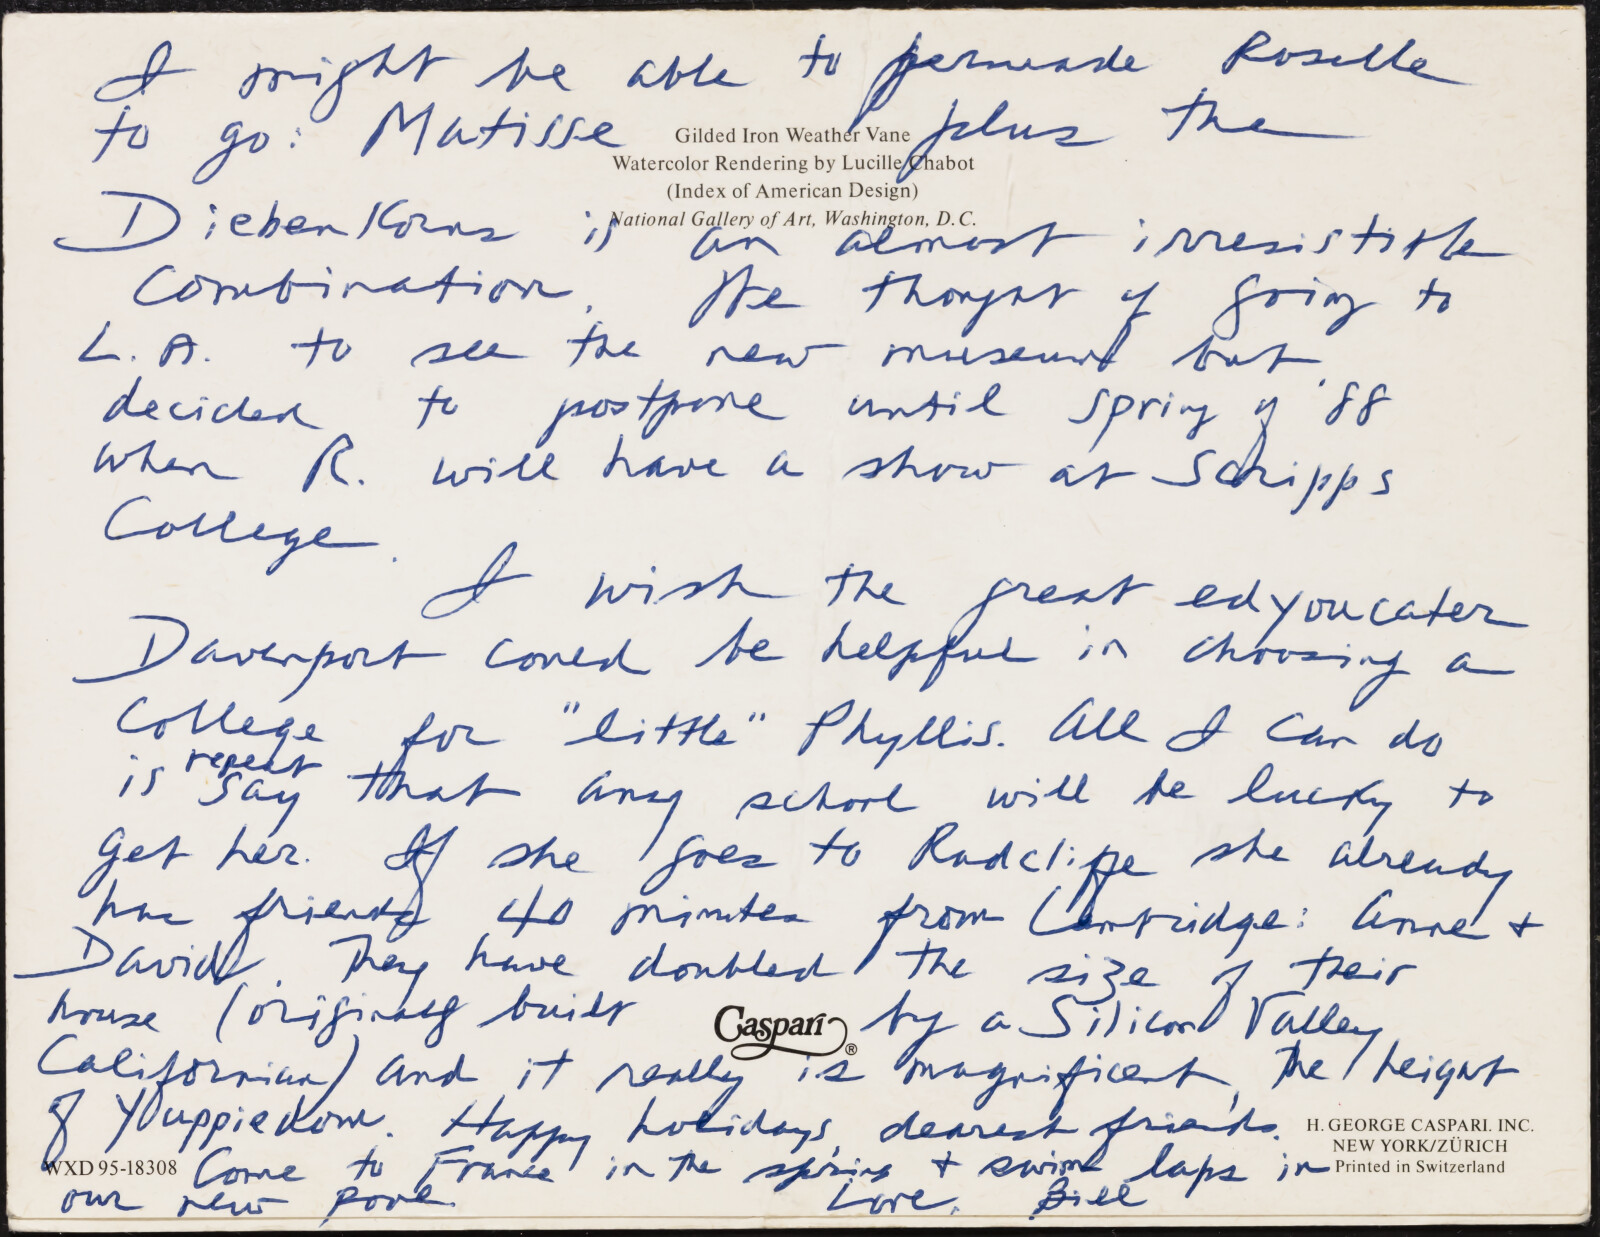 I might be able to persuade Roselle
to go: Matisse plus the
Gilded Iron Weather Vane
Watercolor Rendering by Lucille Chabot
(Index of American Design)
National Gallery of Art, Washington, D.C.
Diebenkorns is an almost irresistible
combination. We thought of going to
L.A. to see the new museums but
decided to postpone until spring of '88
when R. will have a show at Scripps
College.
I wish the great edyoucater
Davenport could be helpful in choosing a
college for "little" Phyllis. All I can do
is repeat say that any school will be lucky to
get her. If she goes to Radcliffe she already
has friends 40 minutes from Cambridge: Anne +
David. They have doubled the size of their
house (originally built by a Silicon Valley
Caspari ®
Californian) and it really is magnificent, the height
of Yuppiedom. Happy holidays, dearest friends.
H. GEORGE CASPARI. INC.
NEW YORK/ZÜRICH
Printed in Switzerland
WXD 95-18308
Come to France in the spring + swim laps in
our new pool. Love, Bill